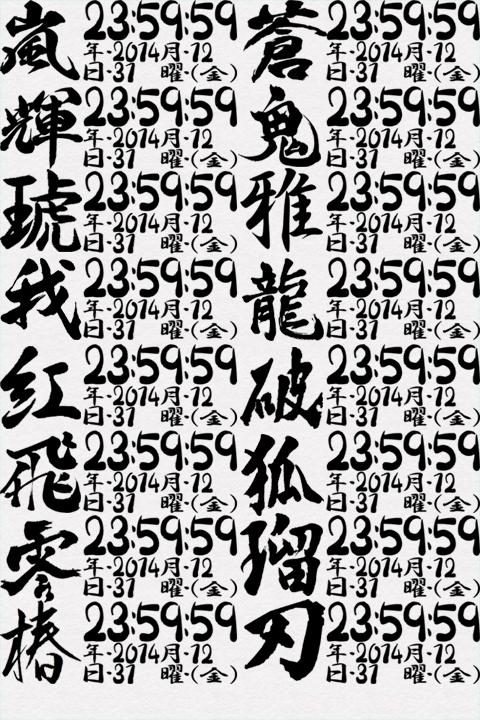 嵐 23:59:59
年-2014月-12
日-31 曜-(金)
蒼 23:59:59
年-2014月-12
日-31 曜-(金)
輝 23:59:59
年-2014月-12
日-31 曜-(金)
鬼 23:59:59
年-2014月-12
日-31 曜-(金)
琥 23:59:59
年-2014月-12
日-31 曜-(金)
雅 23:59:59
年-2014月-12
日-31 曜-(金)
我 23:59:59
年-2014月-12
日-31 曜-(金)
龍 23:59:59
年-2014月-12
日-31 曜-(金)
紅 23:59:59
年-2014月-12
日-31 曜-(金)
破 23:59:59
年-2014月-12
日-31 曜-(金)
飛 23:59:59
年-2014月-12
日-31 曜-(金)
狐 23:59:59
年-2014月-12
日-31 曜-(金)
零 23:59:59
年-2014月-12
日-31 曜-(金)
瑠 23:59:59
年-2014月-12
日-31 曜-(金)
椿 23:59:59
年-2014月-12
日-31 曜-(金)
刃 23:59:59
年-2014月-12
日-31 曜-(金)